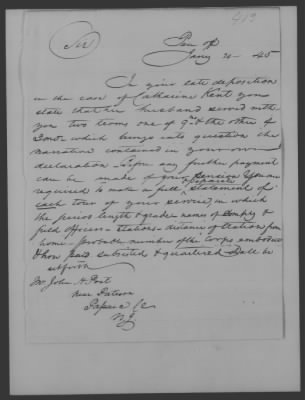 Sir
Pen off
Jany 20 - 45
In your late deposition
in the case of Catharine Kent you
state that her husband served with
you two terms one of 7 mo & the other of
2 mo. - which brings into question the
narration contained in your own
declaration - before any further payment
can be made of your pension You are
required to make a full & separate statement of
each tour of your service, in which
the period length & grade names of Compy &
field officers - stations - distance of station from
home - probable number of the corps embodied
& how paid subsisted & quartered shall be
set forth
Mr John A. Post
near Paterson
Passaic Co
N.J.